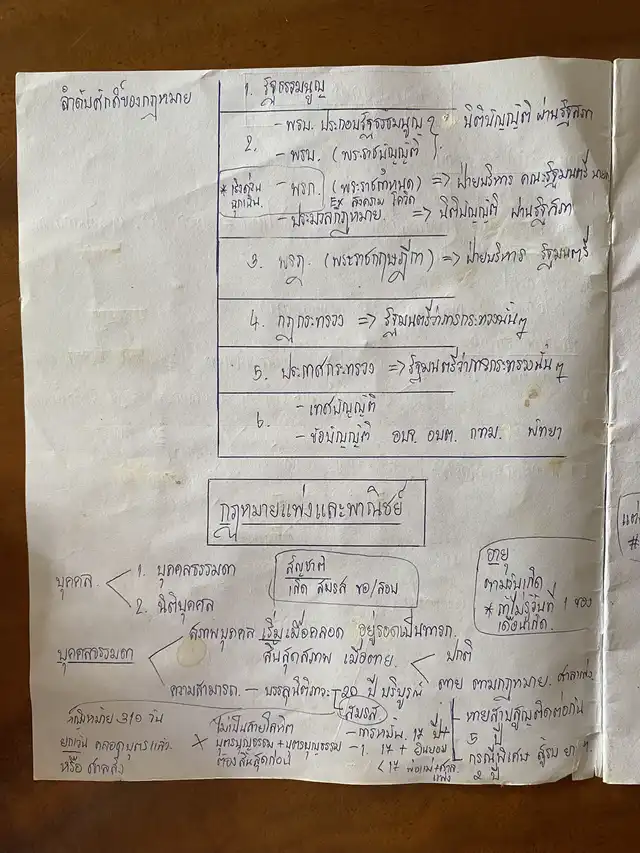 ลำดับศักดิ์ของกฎหมาย
1. รัฐธรรมนูญ
2. - พรบ. ประกอบรัฐธรรมนูญฯ นิติบัญญัติ ผ่านรัฐสภา
- พรบ. (พระราชบัญญัติ)
* เร่งด่วน ฉุกเฉิน
- พรก. (พระราชกำหนด) => ฝ่ายบริหาร คณะรัฐมนตรี
Ex สงคราม โควิด
- ประมวลกฎหมาย. => นิติบัญญัติ ผ่านรัฐสภา
3. พรฎ. (พระราชกฤษฎีกา) => ฝ่ายบริหาร รัฐมนตรี
4. กฎกระทรวง => รัฐมนตรีว่าการกระทรวงนั้นๆ
5. ประกาศกระทรวง => รัฐมนตรีว่าการกระทรวงนั้นๆ
6. - เทศบัญญัติ
- ข้อบัญญัติ อบจ. อบต. กทม. พัทยา
กฎหมายแพ่งและพาณิชย์
บุคคล
1. บุคคลธรรมดา
2. นิติบุคคล
สัญชาติ
เกิด สมรส ขอ/สอบ
อายุ
ตามวันเกิด
* ถ้าไม่รู้วันที่ 1 ของ
เดือนเกิด.
บุคคลธรรมดา
สภาพบุคคล เริ่มเมื่อคลอด อยู่รอดเป็นทารก.
สิ้นสุดสภาพ เมื่อตาย.
ปกติ
ตาย ตามกฎหมาย. ศาลสั่ง.
ความสามารถ. - บรรลุนิติภาวะ 20 ปี บริบูรณ์
สมรส
- การหมั้น. 17 ปี+
- 1. 17 + ยินยอม
< 17 พ่อแม่+ศาล
หายสาบสูญติดต่อกัน
5 ปี
กรณีพิเศษ สู้รบ
2 ปี
หญิงหม้าย 310 วัน
ยกเว้น คลอดบุตรแล้ว
หรือ ศาลสั่ง
× ไม่เป็นสายโลหิต
บุตรบุญธรรม + บุตรบุญธรรม
ต้องสิ้นสุดก่อน